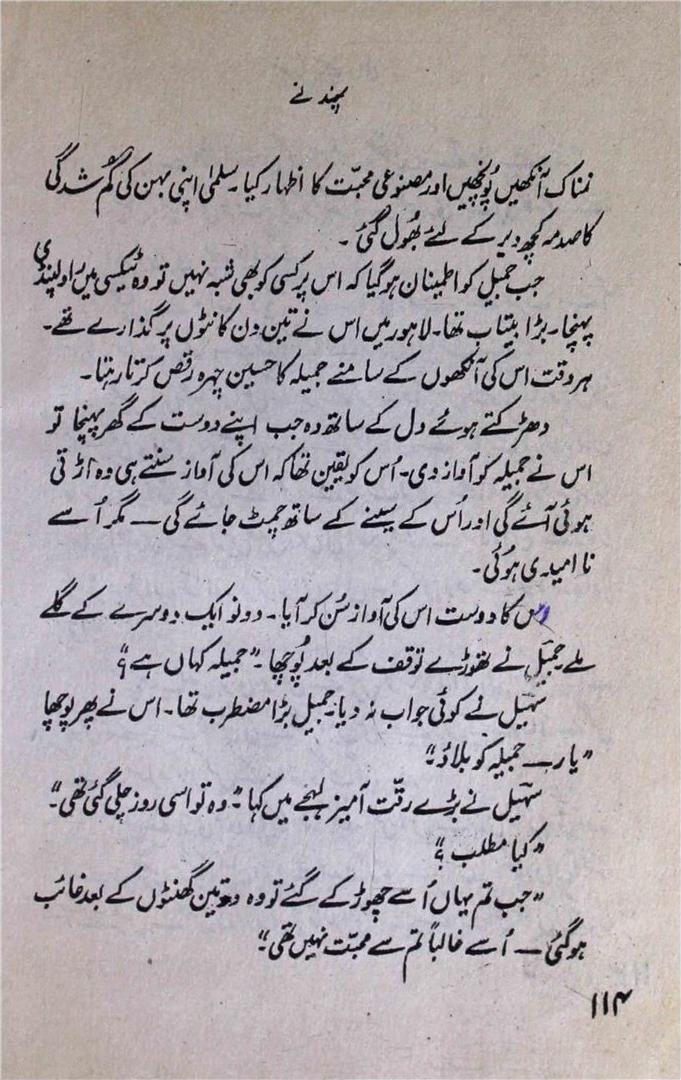 پھندنے
نمناک آنکھیں پُونچھیں اور مصنوعی محبّت کا اظہار کیا۔ سلمیٰ اپنی بہن کی گُم شدگی
کا صدمہ کچھ دیر کے لئے بھُول گئی۔
جب جمیل کو اطمینان ہو گیا کہ اس پر کسی کو بھی شبہ نہیں تو وہ ٹیکسی میں راولپنڈی
پہنچا۔ بڑا بیتاب تھا۔ لاہور میں اس نے تین دن کانٹوں پر گذارے تھے۔
ہر وقت اس کی آنکھوں کے سامنے جمیلہ کا حسین چہرہ رقص کرتا رہتا۔
دھڑکتے ہوئے دل کے ساتھ وہ جب اپنے دوست کے گھر پہنچا تو
اس نے جمیلہ کو آواز دی۔ اُس کو یقین تھا کہ اس کی آواز سنتے ہی وہ اڑتی
ہوئی آئے گی اور اُس کے سینے کے ساتھ چمٹ جائے گی — مگر اُسے
نا امیدی ہوُئی۔
اس کا دوست اس کی آواز سُن کر آیا۔ دونو ایک دوسرے کے گلے
ملے۔ جمیل نے تھوڑے توقف کے بعد پُوچھا۔ "جمیلہ کہاں ہے؟"
سہیل نے کوئی جواب نہ دیا۔ جمیل بڑا مضطرب تھا۔ اس نے پھر پوچھا
"یار — جمیلہ کو بلاؤ۔"
سہیل نے بڑے رقّت آمیز لہجے میں کہا۔ "وہ تو اسی روز چلی گئی تھی۔"
"کیا مطلب؟"
"جب تم یہاں اُسے چھوڑ کے گئے تو وہ دو تین گھنٹوں کے بعد غائب
ہو گئی — اُسے غالباً تم سے محبّت نہیں تھی۔"
۱۱۴